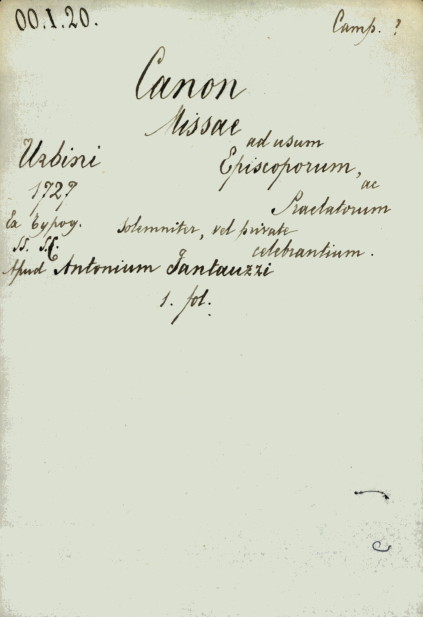 00.I.20.
Camp. ?
Canon
Missae
ad usum
Urbini
Episcoporum, ac
1729
Praelatorum
Ex Typog.
solemniter, vel private
SS. S.C.
celebrantium.
Apud Antonium Fantauzzi
1. fol.